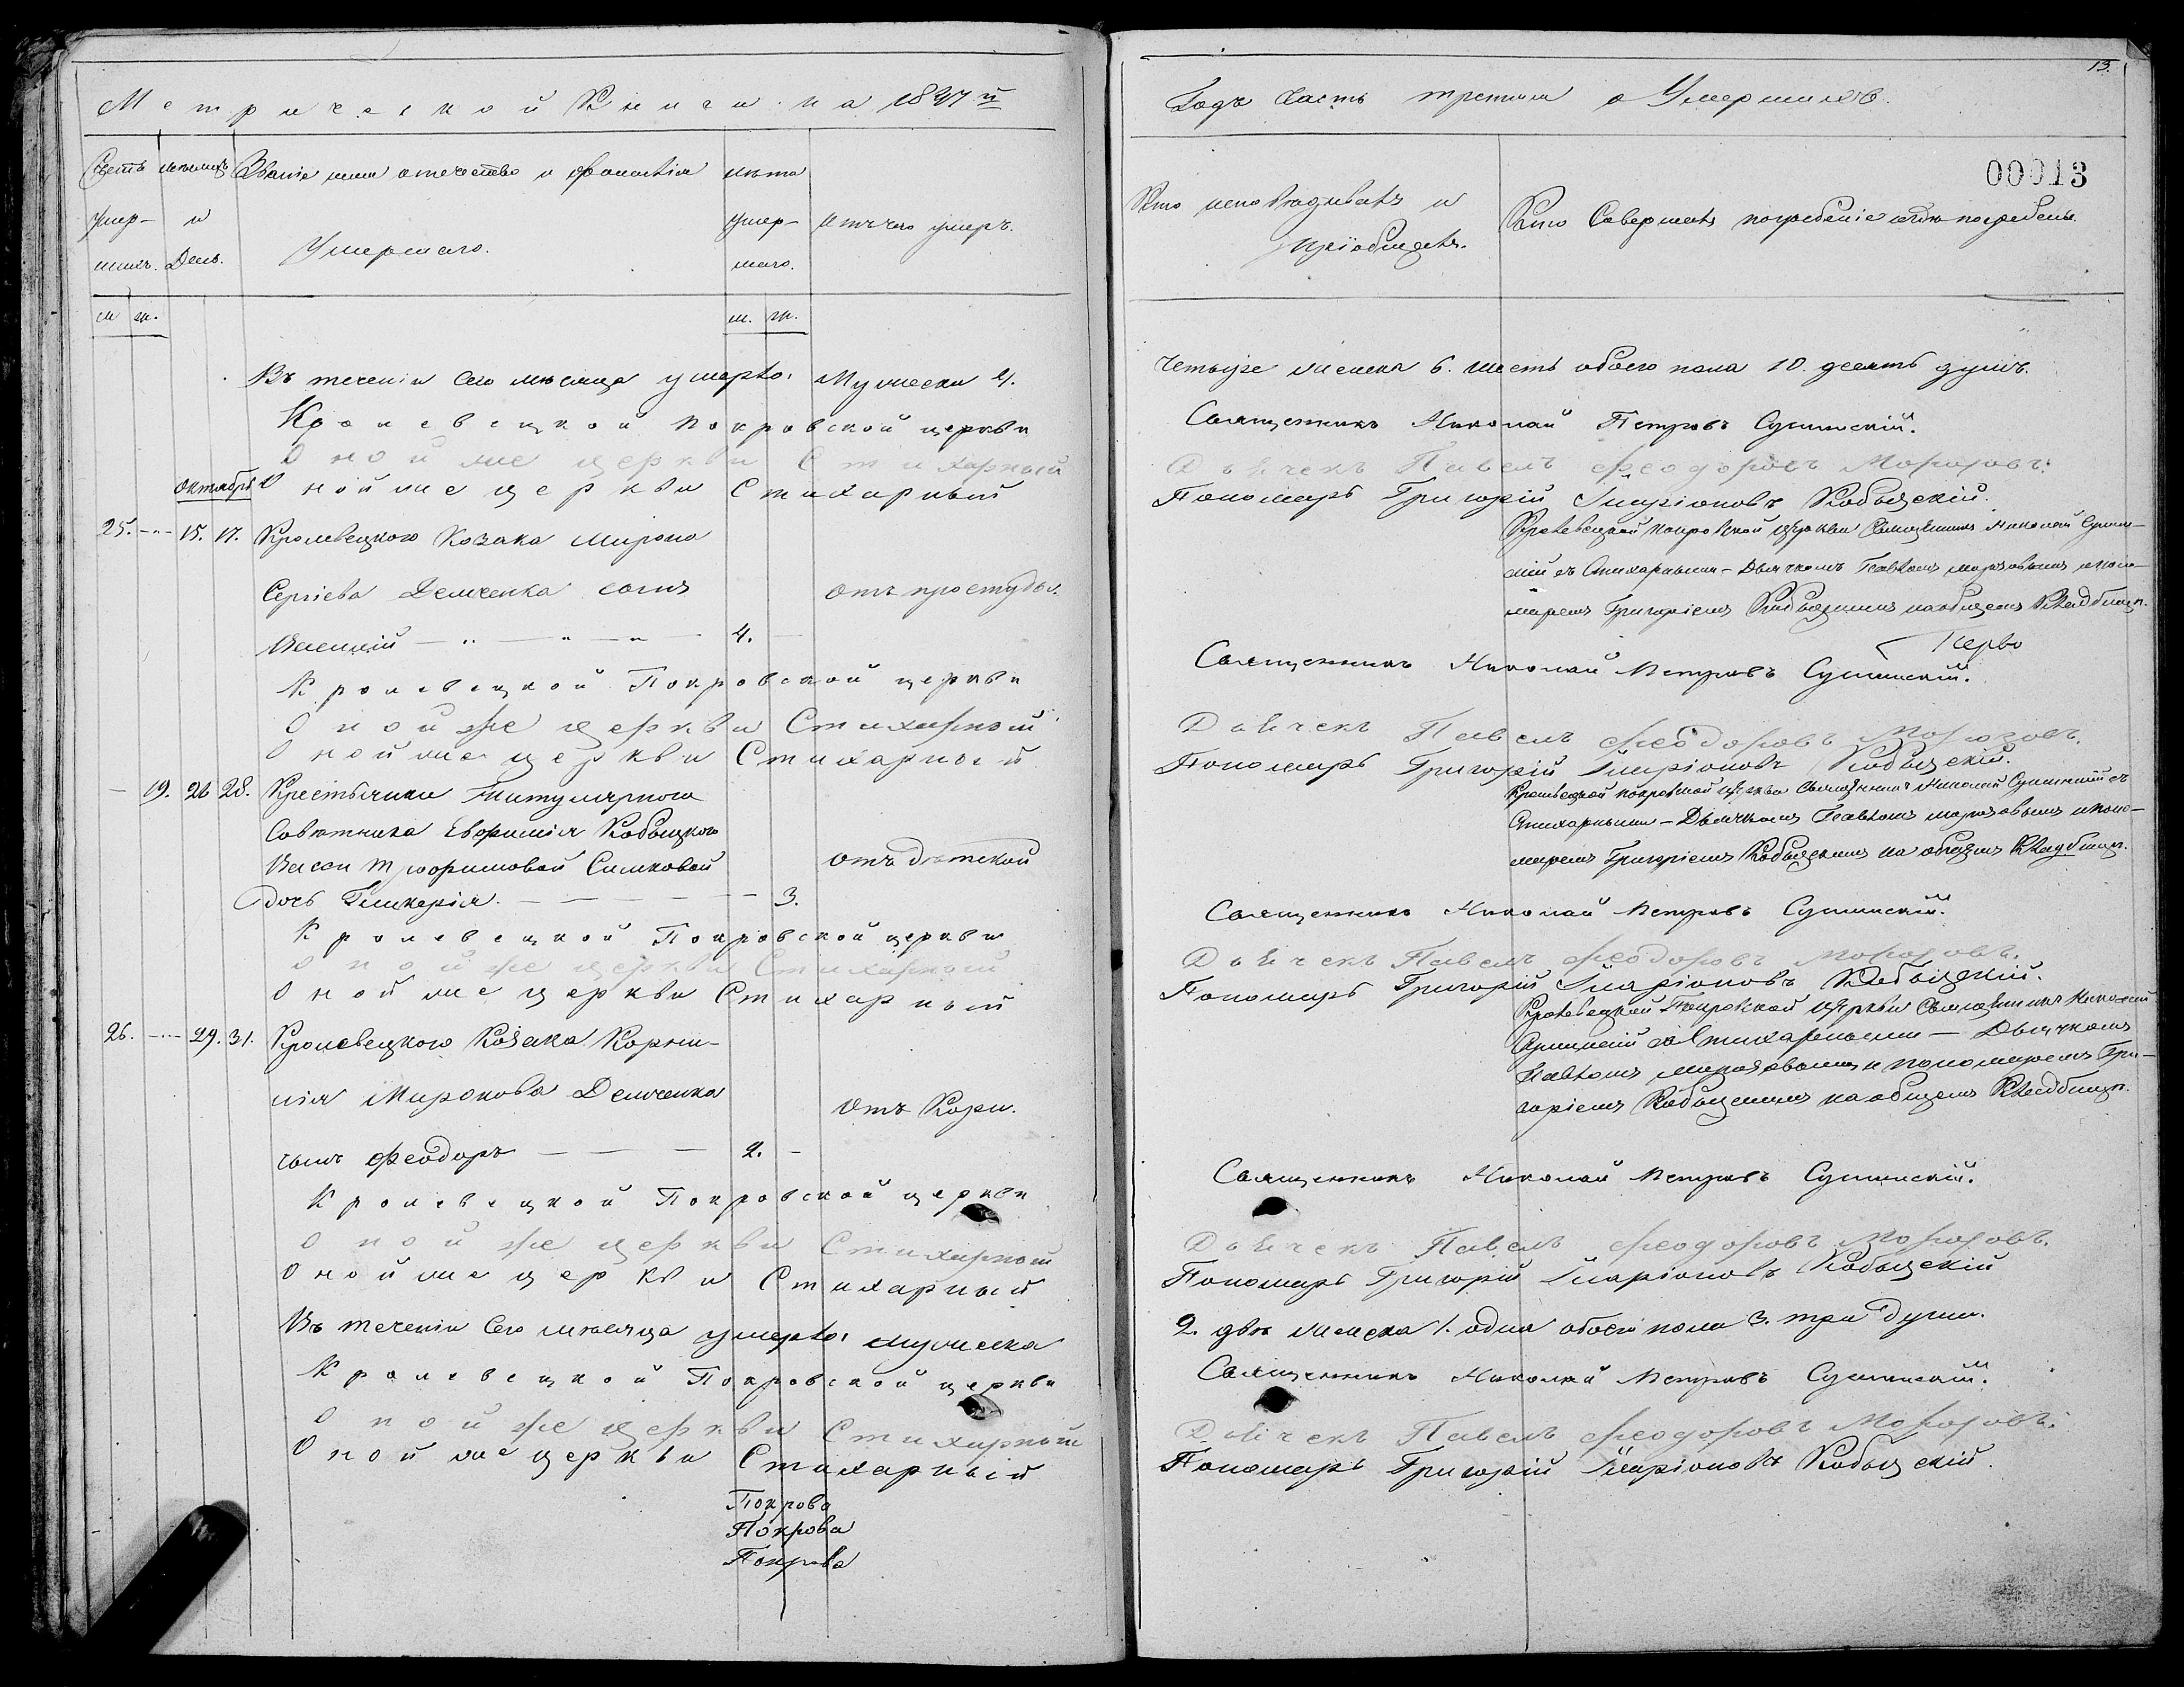 Метрической Книги на 1837й
Счетъ умершихъ. мѣсяцъ и День.
Званіе имя отечество и фамилія Умершаго.
лѣта умершаго.
Отъ чего умеръ.
м ж.
м. ж.
Въ теченіи Сего мѣсяца умерло: Мужеска 4.
Кролевецкой Покровской церкви
Оной же церкви Стихарный
Октябрь Оной же церкви Стихарный
25. 15. 17. Кролевецкого Козака Мирона
Сергіева Демченка сынъ Отъ простуды.
4.
Кролевецкой Покровской церкви
Оной же церкви Стихарный
Оной же церкви Стихарный
19. 26 28. Крестьянки Титулярного
Совѣтника Евфимія Кобыщкого
Трофимовой Симковой Отъ дѣтской
дочь Гликерія. 3.
Кролевецкой Покровской церкви
Оной же церкви Стихарный
Оной же церкви Стихарный
26. 29. 31. Кролевецкого Козака Корни-
лія Миронова Демченка Отъ Кори.
сынъ Феодоръ 2.
Кролевецкой Покровской церкви
Оной же церкви Стихарный
Оной же церкви Стихарный
Въ теченіи Сего мѣсяца умерло: мужеска
Кролевецкой Покровской церкви
Оной же церкви Стихарный
Оной же церкви Стихарный
Покрова
Покрова
Покрова
13.
Годъ Часть третия о Умершихъ.
00013
Кто исповѣдывалъ и пріобщалъ.
Кто Совершалъ погребеніе и гдѣ погребены
Четыре женска 6. шесть обоего пола 10. десять душъ.
Священникъ Николай Петровъ Сушинскій.
Дьячекъ Павелъ Феодоровъ Морозовъ.
Пономарь Григорій Иларіоновъ Кобыщскій.
Кролевецкой Покровской Церкви Священникъ Николай Сушин-
скій съ Стихарными - Дьячкомъ Павломъ Морозовымъ и поно-
маремъ Григоріемъ Кобыщскимъ на общемъ Кладбищи.
Перво
Священникъ Николай Петровъ Сушинскій.
Дьячекъ Павелъ Феодоровъ Морозовъ.
Пономарь Григорій Иларіоновъ Кобыщскій.
Кролевецкой Покровской Церкви Священникъ Николай Сушинскій съ
Стихарными - Дьячкомъ Павломъ Морозовымъ и поно-
маремъ Григоріемъ Кобыщскимъ на общемъ Кладбищи.
Священникъ Николай Петровъ Сушинскій.
Дьячекъ Павелъ Феодоровъ Морозовъ.
Пономарь Григорій Иларіоновъ Кобыщскій.
Кролевецкой Покровской Церкви Священникъ Николай
Сушинскій со Стихарными - Дьячкомъ
Павломъ Морозовымъ и пономаремъ Гри-
горіемъ Кобыщскимъ на общемъ Кладбищи.
Священникъ Николай Петровъ Сушинскій.
Дьячекъ Павелъ Феодоровъ Морозовъ.
Пономарь Григорій Иларіоновъ Кобыщскій
2. два женска 1. одна обоего пола 3. три души.
Священникъ Николай Петровъ Сушинскій.
Дьячекъ Павелъ Феодоровъ Морозовъ.
Пономарь Григорій Иларіоновъ Кобыщскій.